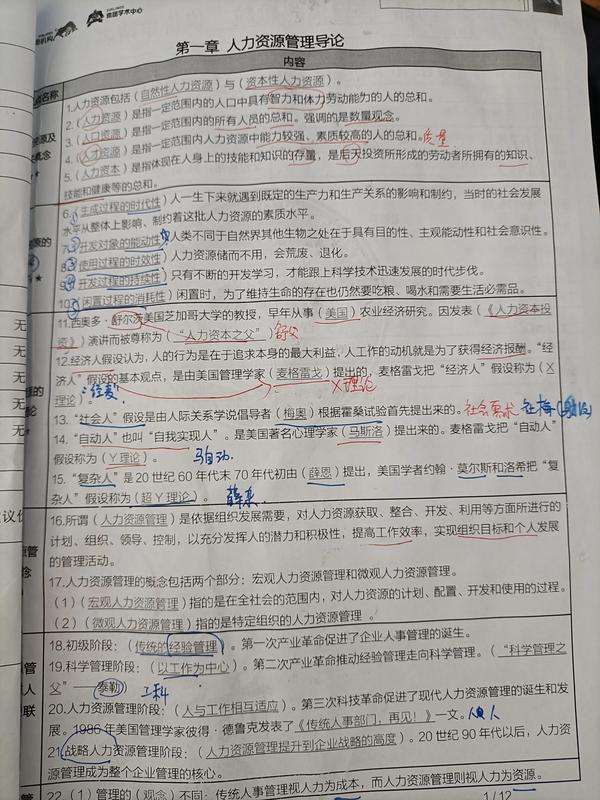 尚国学术中心
第一章 人力资源管理导论
内容
1.人力资源包括（自然性人力资源）与（资本性人力资源）。
2.（人力资源）是指一定范围内的人口中具有智力和体力劳动能力的人的总和。
3.（人口资源）是指一定范围内的所有人员的总和。强调的是数量观念。
4.（人才资源）是指一定范围内人力资源中能力较强、素质较高的人的总和。 质量
5.（人力资本）是指体现在人身上的技能和知识的存量，是后天投资所形成的劳动者所拥有的知识、
技能和健康等的总和。
6.（生成过程的时代性）人一生下来就遇到既定的生产力和生产关系的影响和制约，当时的社会发展
水平从整体上影响、制约着这批人力资源的素质水平。
7.（开发对象的能动性）人类不同于自然界其他生物之处在于具有目的性、主观能动性和社会意识性。
8.（使用过程的时效性）人力资源储而不用，会荒废、退化。
9.（开发过程的持续性）只有不断的开发学习，才能跟上科学技术迅速发展的时代步伐。
10.（闲置过程的消耗性）闲置时，为了维持生命的存在也仍然要吃粮、喝水和需要生活必需品。
11.西奥多·舒尔茨美国芝加哥大学的教授，早年从事（美国）农业经济研究。因发表（《人力资本投
资》）演讲而被尊称为（“人力资本之父”） 舒父
12.经济人假设认为，人的行为是在于追求本身的最大利益，人工作的动机就是为了获得经济报酬。“经
济人”假设的基本观点，是由美国管理学家（麦格雷戈）提出的，麦格雷戈把“经济人”假设称为（X
理论）。 X理论
13.“社会人”假设是由人际关系学说倡导者（梅奥）根据霍桑试验首先提出的。 社会需求
14.“自动人”也叫“自我实现人”。是美国著名心理学家（马斯洛）提出来的。麦格雷戈把“自动人”
假设称为（Y理论）。 马自动
15.“复杂人”是20世纪60年代末70年代初由（薛恩）提出，美国学者约翰·莫尔斯和洛希把“复
杂人”假设称为（超Y理论）。
16.所谓（人力资源管理）是依据组织发展需要，对人力资源获取、整合、开发、利用等方面所进行的
计划、组织、领导、控制，以充分发挥人的潜力和积极性，提高工作效率，实现组织目标和个人发展
的管理活动。
17.人力资源管理的概念包括两个部分：宏观人力资源管理和微观人力资源管理。
（1）（宏观人力资源管理）指的是在全社会的范围内，对人力资源的计划、配置、开发和使用的过程。
（2）（微观人力资源管理）指的是特定组织的人力资源管理 。
18.初级阶段：（传统的经验管理）。第一次产业革命促进了企业人事管理的诞生。
19.科学管理阶段：（以工作为中心）。第二次产业革命推动经验管理走向科学管理。（“科学管理之
父”——泰勒） 工科
20.人力资源管理阶段：（人与工作相互适应）。第三次科技革命促进了现代人力资源管理的诞生和发
展。1986年美国管理学家彼得·德鲁克发表了《传统人事部门，再见！》一文。
21.战略人力资源管理阶段：（人力资源管理提升到企业战略的高度）。20世纪90年代以后，人力资
源管理成为整个企业管理的核心。
22.（1）管理的（观念）不同：传统人事管理视人力为成本，而人力资源管理则视人力为资源。
1/12